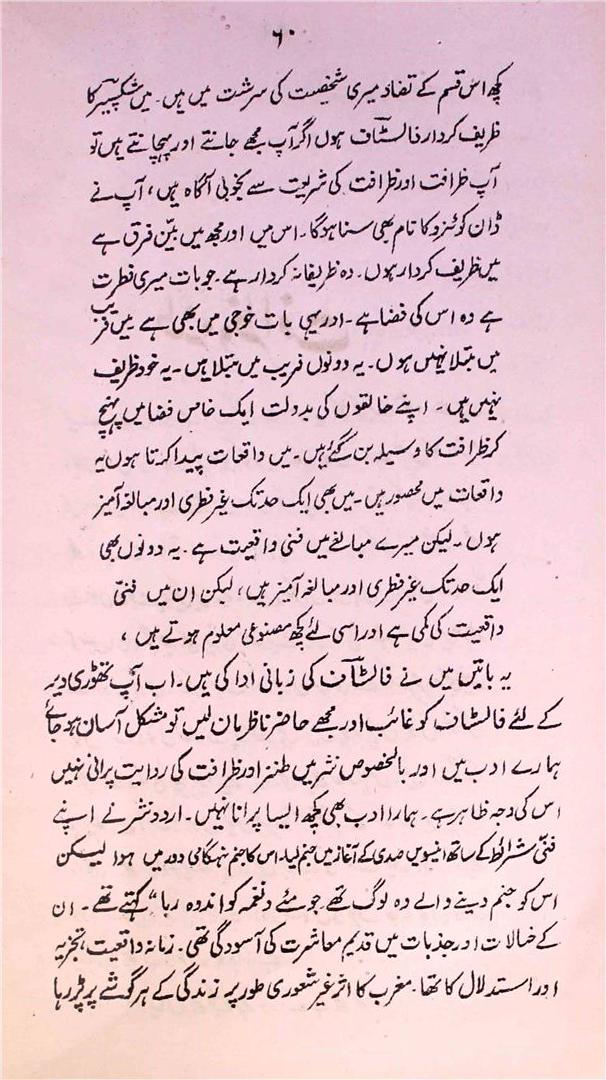 ۶۰
کچھ اس قسم کے تضاد میری شخصیت کی سرشت میں ہیں۔ میں شکسپیئر کا
ظریف کردار فالسٹاف ہوں اگر آپ مجھے جانتے اور پہچانتے ہیں تو
آپ ظرافت اور ظرافت کی شریعت سے بخوبی آگاہ ہیں، آپ نے
ڈان کوئنزو کا نام بھی سنا ہوگا۔ اس میں اور مجھ میں بیّن فرق ہے
میں ظریف کردار ہوں۔ وہ ظریفانہ کردار ہے۔ جو بات میری فطرت
ہے وہ اس کی فضا ہے۔ اور یہی بات خوجی میں بھی ہے میں فریب
میں مبتلا نہیں ہوں۔ یہ دونوں فریب میں مبتلا ہیں۔ یہ خود ظریف
نہیں ہیں۔ اپنے خالقوں کی بدولت ایک خاص فضا میں پہنچ
کر ظرافت کا وسیلہ بن گئے ہیں۔ میں واقعات پیدا کرتا ہوں یہ
واقعات میں محصور ہیں۔ میں بھی ایک حد تک غیر فطری اور مبالغہ آمیز
ہوں۔ لیکن میرے مبالغے میں فنی واقعیت ہے۔ یہ دونوں بھی
ایک حد تک غیر فطری اور مبالغہ آمیز ہیں، لیکن ان میں فنّی
واقعیت کی کمی ہے اور اسی لئے کچھ مصنوعی معلوم ہوتے ہیں،
یہ باتیں میں نے فالسٹاف کی زبانی ادا کی ہیں۔ اب آپ تھوڑی دیر
کے لئے فالسٹاف کو غائب اور مجھے حاضر ناظر مان لیں تو مشکل آسان ہو جائے
ہمارے ادب میں اور بالخصوص نثر میں طنز اور ظرافت کی روایت پرانی نہیں
اس کی وجہ ظاہر ہے۔ ہمارا ادب بھی کچھ ایسا پرانا نہیں۔ اردو نثر نے اپنے
فنی شرائط کے ساتھ انیسویں صدی کے آغاز میں جنم لیا۔ اس کا جنم ہنگامی دور میں ہوا لیکن
اس کو جنم دینے والے وہ لوگ تھے جو مئے و نغمہ کو اندوہ ربا" کہتے تھے۔ ان
کے خیالات اور جذبات میں قدیم معاشرت کی آسودگی تھی۔ زمانہ واقعیت، تجزیہ
اور استدلال کا تھا۔ مغرب کا اثر غیر شعوری طور پر زندگی کے ہر گوشے پر پڑ رہا